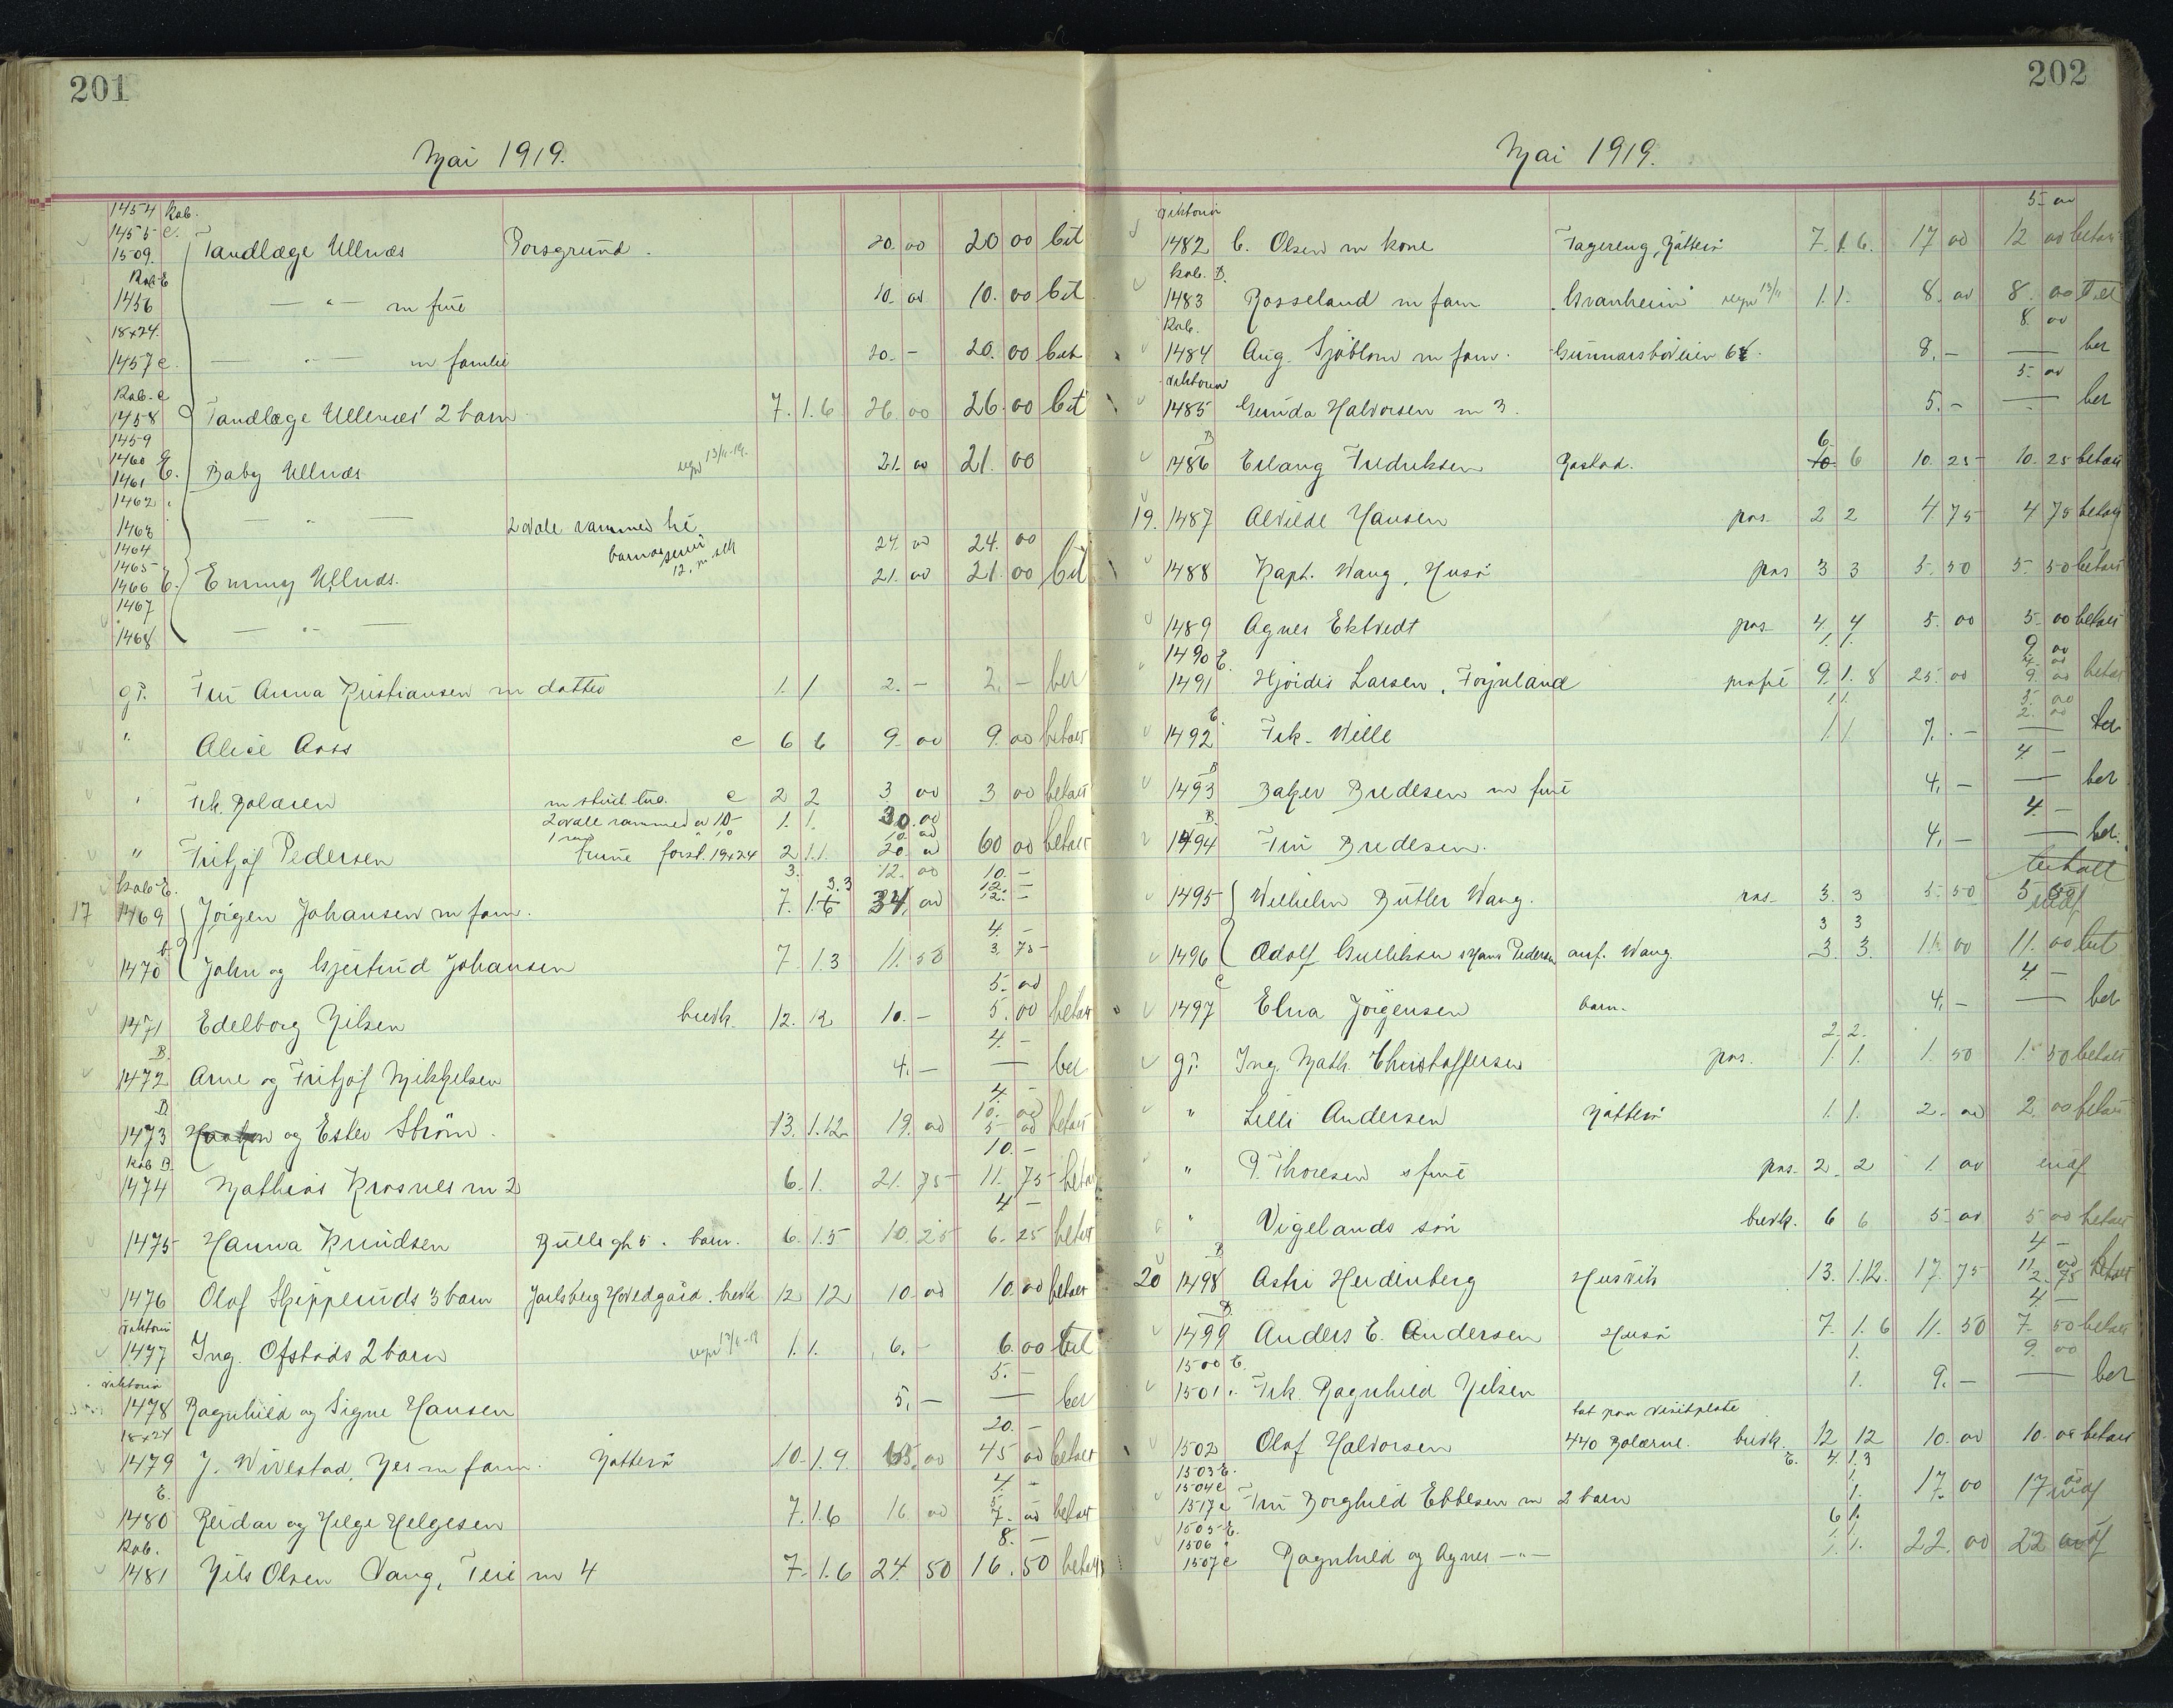 201
Mai 1919.
1454 Kab.
1455 C.
1509. Tandlæge Ullnæs Porsgrund. 20. 00 20 00 bet
Kab. E
1456 — " — m frue 10. 00 10. 00 bet
18x24.
1457 c. — " — m familie 20. - 20. 00 bet
Kab. c
1458 Tandlæge Ullnæs' 2 barn 7. 1. 6 26. 00 26. 00 bet
1459
1460 E
1461 E. Baby Ullnæs regn 13/6-19. 21. 00 21. 00
1462
1463 — " — 2 ovale rammer
1464 24. 00 24. 00
1465
1466 E. Emmy Ullnæs. 21. 00 21. 00 bet
1467
1468 — " —
gr. Fru Anna Kristiansen m datter 1. 1 2. - 2. - ber
" Alice Aass c 6 6 9. 00 9. 00 betalt
" Frk. Bolæren c 2 2 3 00 3 00 betalt
2 ovale rammer a 10- 1. 1. 30. 00
" Fritjof Pedersen forst. 19x24 2 1.1 20. 00 60 00 betalt
3. 12. 00 10. -
Kab. E. 3. 3 12. -
17 1469 Jörgen Johansen m fam. 7. 1. 6 34. 00 12. -
4. -
1470 John og Gjertrud Johansen 7 1. 3 11. 50 3. 75
5. 00
1471 Edelborg Nilsen brevk. 12. 12 10. - 5. 00 betalt
B. 4. -
1472 Arne og Fritjof Mikkelsen 4. - — ber
B. 4. -
10. 00
1473 og Ester Ström. 13. 1. 12 19. 00 5 00 betalt
Kab B. 10. -
1474 Mathias Krosnes m 2 6. 1. 21. 75 11. 75 betalt
4 -
1475 Hanna Knudsen Bullsgt 5. barn. 6. 1. 5 10. 25 6. 25 betalt
1476 Olaf Skipperuds 3 barn Jarlsberg Hovedgård. brevk 12 12 10. 00 10. 00 betalt
Viktoria
1477 Ing. Ofstads 2 barn regn 13/6-19 1. 1. 6. - 6. 00 bet
Viktoria 5. -
1478 Ragnhild og Signe Hansen 5. - — ber
18x24 20. -
1479 J. Wivestad, Nes m fam. Nötterö 10. 1. 9. 65. 00 45 00 betalt
E. 4. -
5.
1480 Reidar og Helge Helgesen 7. 1. 6 16. 00 7. 00 betalt
Kab. 8. -
1481 Nils Olsen Vang, Teie m 4 7. 1. 6 24. 50 16. 50 betalt
202
Mai 1919.
Viktoria 5. 00
1482 C. Olsen m kone Fagereng, Nötterö 7. 1. 6. 17 00 12 00 betalt
Kab. B.
1483 Rosseland m fam "Granheim" regn 13/6 1. 1. 8. 00 8. 00 bet
Kab. 8. 00
1484 Aug. Sjöblom m fam. Gunnarsböveien 6 8. - — ber
Viktoria 5. 00
1485 Gunda Halvorsen m 3. 5. - — ber
B 6.
1486 Erling Fredriksen 10 6 10. 25 10. 25 betalt
19. 1487 Alvilde Hansen pas. 2 2 4 75 4 75 betalt
1488 Kapt. Wang, Husö pas 3 3 5. 50 5. 50 betalt
1489 Agnes Ektvedt pas 4. 4 5. 00 5. 00 betalt
1490 E. 1. 1. 9 00
1491 Hjördis Larsen, Föynland 9. 1. 8 25. 00 9. 00 betalt
1. 1. 5. 00
E. 2. 00
1492 Frk. Wille 1. 1 7. - — ber
B 4. -
1493 Baker Bredesen m frue 4. - — ber
B. 4. -
1494 Fru Bredesen. 4. - — ber.
betalt
1495 Wilhelm Butler Wang. pas. 3. 3 5. 50 5 50
3 3
1496 Adolf Gulliksen, Hans Pedersen anf. Wang. 3. 3. 11. 00 11. 00 bet
C 4. -
1497 Elna Jörgensen barn. 4. - — ber
2. 2.
gr. Ing. Math. Christoffersen pas. 1. 1. 1. 50 1. 50 betalt
" Lilli Andersen Nötterö 1. 1. 2. 00 2. 00 betalt
" P. Thoresen & frue pas. 2. 2 1. 00
" Vigelands sön brevk. 6 6 5. 00 5 00 betalt
B 4 -
11 00
20 1498 Astri Herdinberg Husvik 13. 1. 12. 17. 75 2. 75 betalt
B. 4. -
1499 Anders E. Andersen Husö 7. 1. 6 11. 50 7. 50 betalt
1500 E. 1. 9. 00
1501 " Frk. Ragnhild Nilsen 1. 9. - — ber
tat paa visitplate
1502 Olaf Halvorsen 440 Bolærne. brevk. 12 12 10. 00 10. 00 betalt
1503 E. E. 4. 1. 3
1504 c 1.
1517 c Fru Borghild Ebbesen m 2 barn 1. 17. 00 17 00
1505 E. 6 1.
1506 " 1. 1.
1507 c Ragnhild og Agnes — " — 1. 1. 22. 00 22